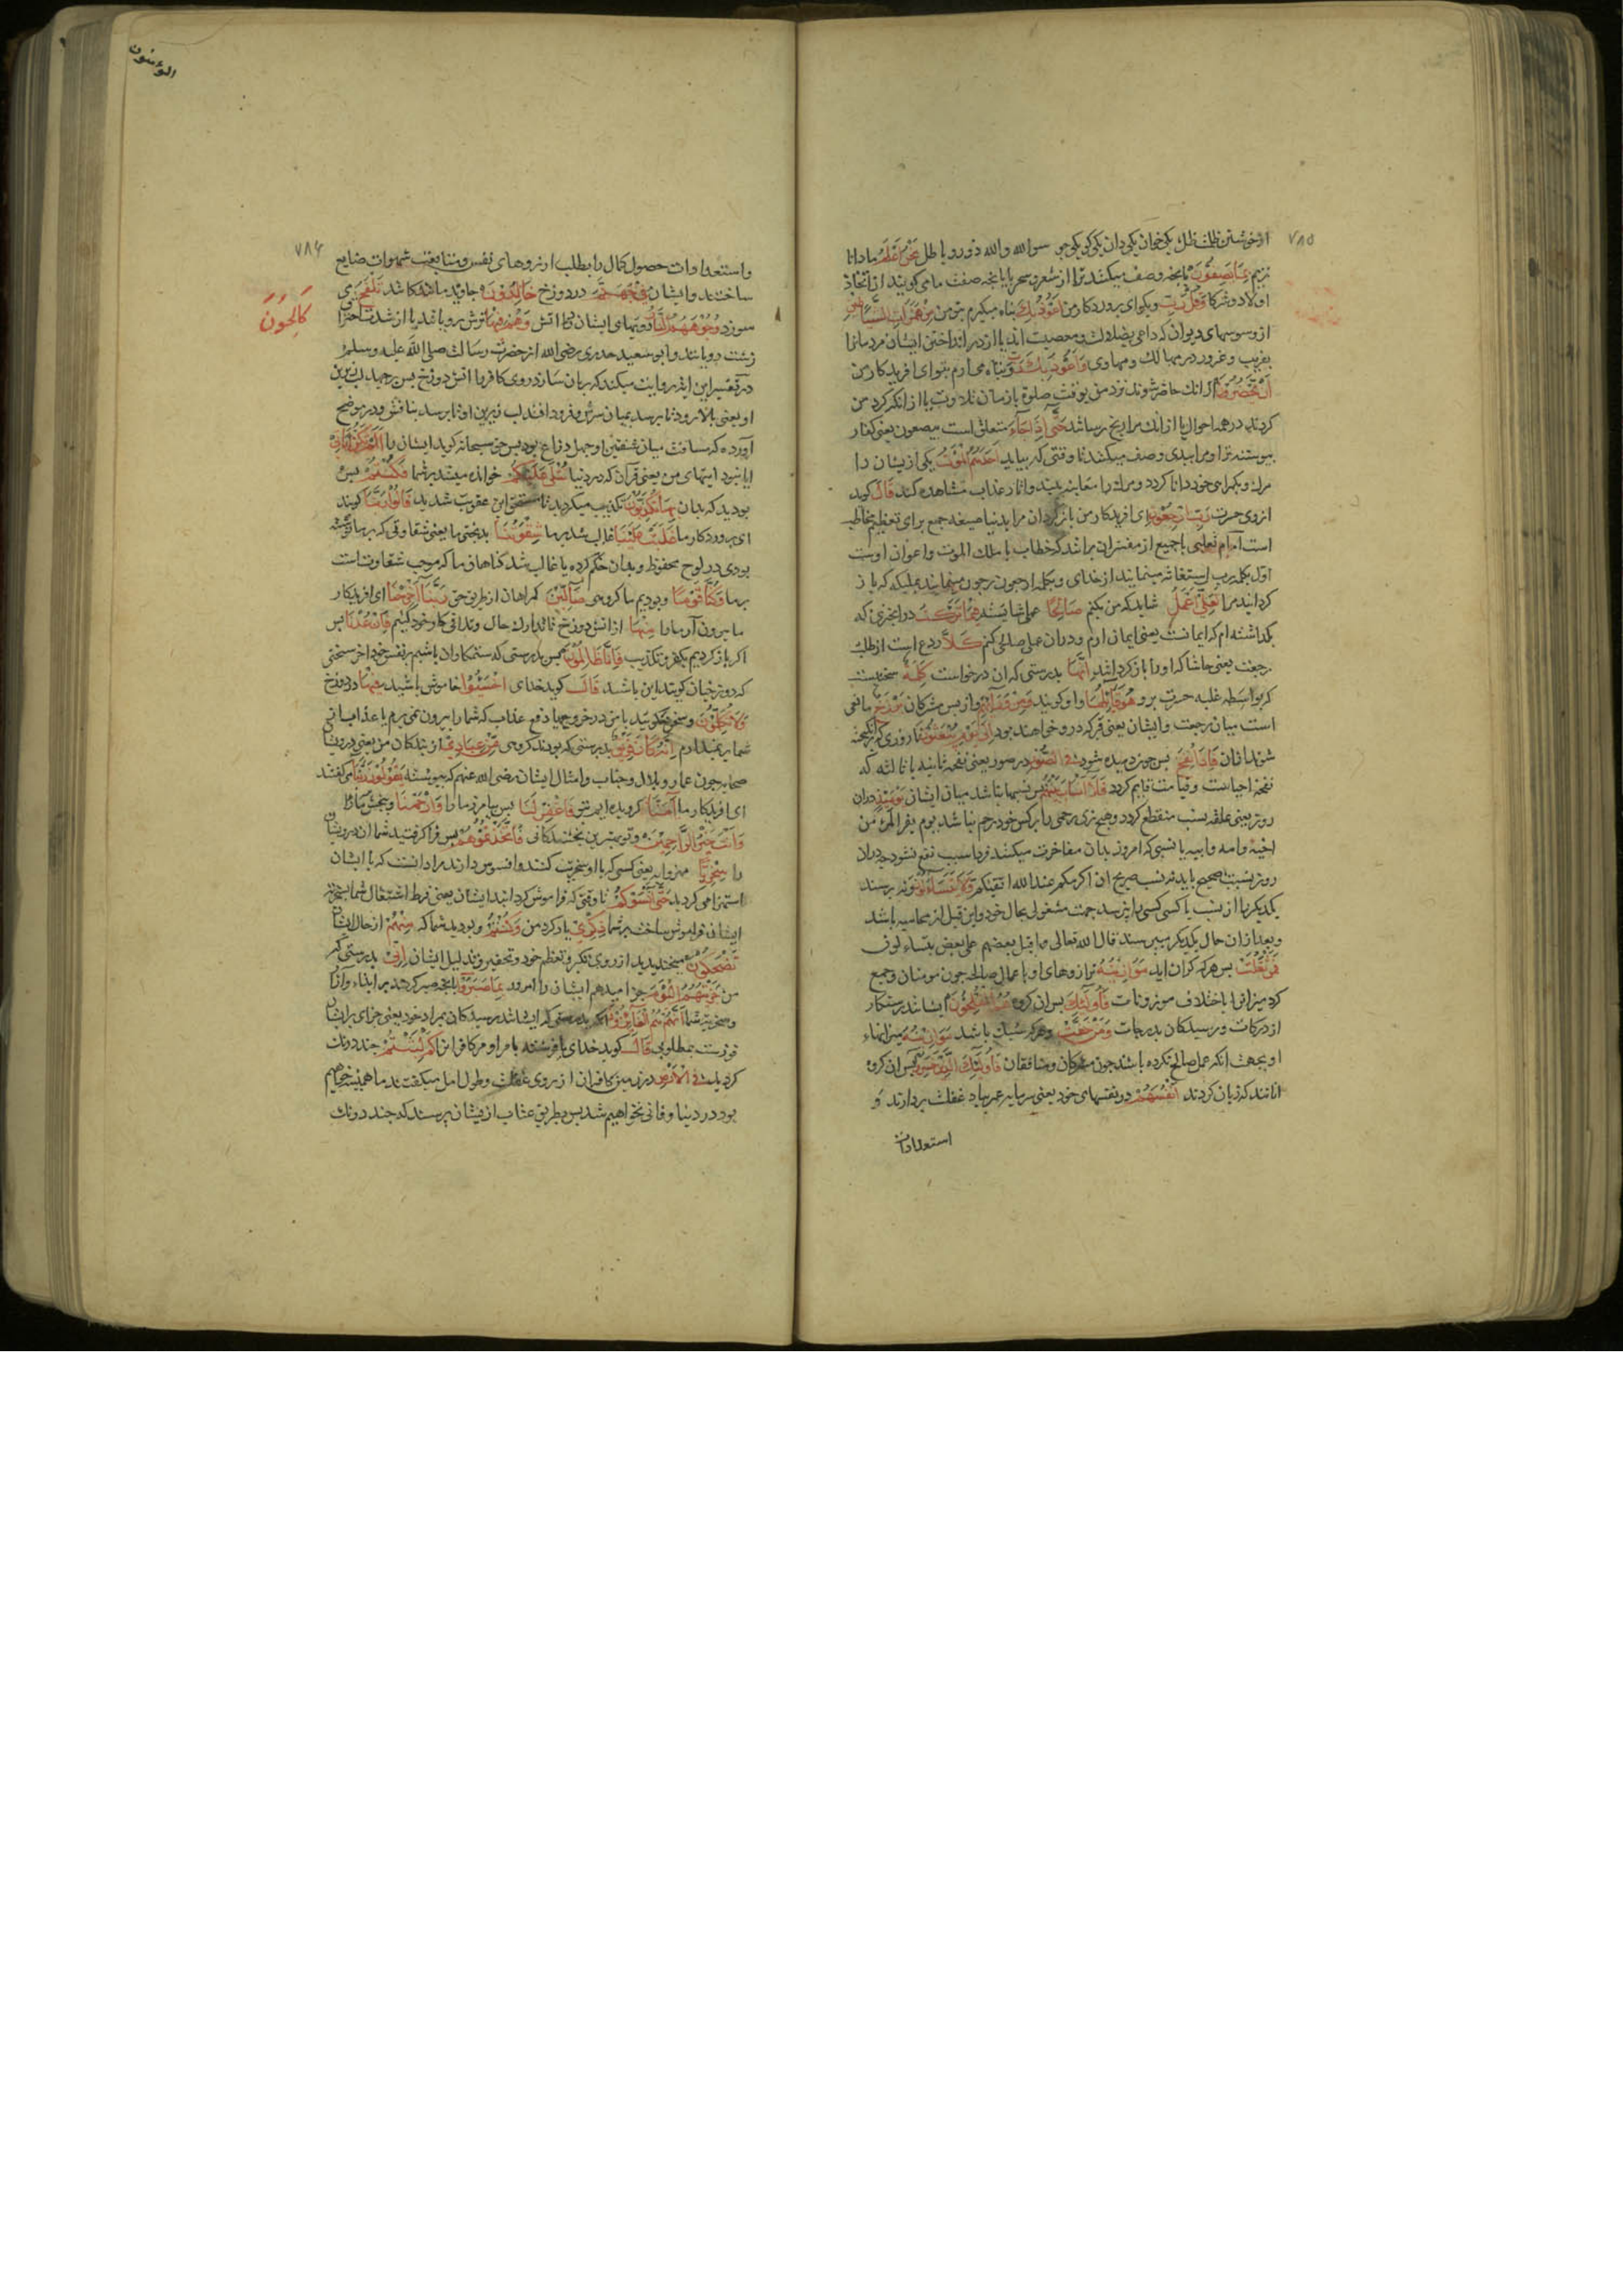 ۷۸۵
از خویشتن ظلمت ظل یکی خوان یکی دان یکی کو یکی جو سوالله والله ذور و باطل نَحْنُ اَعْلَمُ ما دانا
تریم بِمَا يَصِفُونَ بانچه وصف میکنند ترا از شعر و سحر یا بانچه صفت ما می کویند از اتخاذ
اولاد و شرکا وَقُلْ رَبِّ و بکو ای پروردکار من اَعُوذُ بِكَ پناه میکیرم بتو مِنْ هَمَزَاتِ الشَّيَاطِينِ
از وسوسهای دیوان که داعی بضلالت و معصیت اند یا از در انداختن ایشان مردمانرا
بفریب و غرور در مهالك و مهاوی وَاَعُوذُ بِكَ رَبِّ و پناه می آرم بتو ای افریدکار من
اَنْ يَحْضُرُونِ از انك حاضر شوند نزد من بوقت صلوة یا زمان تلاوت یا از انکه کرد من
کردند در همه احوال یا از انك مرا رنج رسانند حَتّٰى اِذَا جَآءَ متعلق است بیصفون یعنی کفار
پیوسته ترا و مرا ببدی وصف میکنند تا وقتی که بیاید اَحَدَهُمُ الْمَوْتُ یکی از یشان را
مرك و بکمراهی خود دانا کردد و مرك را معاینه بیند و اثار عذاب مشاهده کند قَالَ کوید
از روی حسرت رَبِّ ارْجِعُونِ ای افریدکار من باز کردان مرا بدنیا صیغه جمع برای تعظیم مخاطب
است امام ثعلبی با جمیع از مفسران برانند که خطاب با ملك الموت و اعوان اوست
اول بکلمه رب استغاثه مینمایند از خدای و بکلمه ارجعون رجوع مینمایند بملیکه که باز
کردانید مرا لَعَلِّي اَعْمَلُ شاید که من بکنم صَالِحًا عملی شایسته فِيمَا تَرَكْتُ در انچیزی که
بکذاشته ام که ایمانست یعنی ایمان ارم و دران عمل صالحی کنم كَلَّا ردع است از طلب
رجعت یعنی حاشا که او را باز کرداند اِنَّهَا بدرستی که ان درخواست كَلِمَةٌ سخنیست
که بواسطه غلبه حسرت برو هُوَ قَآئِلُهَا او کوینده وَمِنْ وَرَآئِهِمْ و از پس مشرکان بَرْزَخٌ مانعی
است میان رجعت و ایشان یعنی قبر که در و خواهند بود اِلٰى يَوْمِ يُبْعَثُونَ تا روزی که برانکیخته
شوند ازان فَاِذَا نُفِخَ پس چون دمیده شود فِي الصُّورِ در صور یعنی نفخه ثانیه یا ثالثه که
نفخه احیاست و قیامت قایم کردد فَلَا اَنْسَابَ بَيْنَهُمْ پس نسبها نباشد میان ایشان يَوْمَئِذٍ دران
روز یعنی علقه نسب منقطع کردد و هیچ ذی رحمی را بر کس خود رحم نباشد یوم یفر المرء من
اخیه و امه و ابیه یا نسبی که امروز بدان مفاخرت میکنند فردا سبب نفع نشود چه دران
روز نسبت صحیح باید نه نسب صریح ان اکرمکم عند الله اتقیکم وَلَا يَتَسَآءَلُونَ و نه پرسند
یکدیکر را از نسب یا کسی کسی را نپرسد جهت مشغولی بحال خود و این قبل از محاسبه باشد
و بعد ازان حال یکدیکر بپرسند قال الله تعالی فاقبل بعضهم علی بعض یتساءلون
فَمَنْ ثَقُلَتْ پس هر که کران اید مَوَازِينُهُ ترازوهای او باعمال صالحه چون مومنان و جمع
کرد میزانرا باختلاف موزونات فَاُولٰئِكَ پس ان کروه هُمُ الْمُفْلِحُونَ ایشانند رستکار
از درکات و رسیدکان بدرجات وَمَنْ خَفَّتْ و هر که سبك باشد مَوَازِينُهُ میزانهاء
او بجهت انکه عمل صالح نکرده باشد چون مشرکان و منافقان فَاُولٰئِكَ الَّذِينَ خَسِرُوا پس ان کروه
انانند که زیان کردند اَنْفُسَهُمْ در نفسهای خود یعنی سرمایه عمر بباد غفلت بردارند و
استعدادات
المؤمنون
۷۸۶
و استعدادات حصول کمال را بطلب ارزوهای نفس و متابعت شهوات ضایع
ساختند و ایشان فِي جَهَنَّمَ در دوزخ خَالِدُونَ جاوید مانندکانند تَلْفَحُ می
سوزد وُجُوهَهُمُ النَّارُ رویهای ایشان را اتش وَهُمْ فِيهَا ترش رو باشند یا از شدت احتراق
كَالِحُونَ
زشت رویانند و ابو سعید خدری رضی الله از حضرت رسالت صلی الله علیه وسلم
در تفسیر این ایه روایت میکند که بریان سازد روی کافر را اتش دوزخ پس برجهد لب زبرین
او یعنی بالا رود تا برسد بمیان سرش و فرود افتد لب زیرین او تا برسد بنافش و در موضح
آورده که مسافت میان شفتین او چهل ذراع بود پس حق سبحانه کوید ایشان را اَلَمْ تَكُنْ اٰيَاتِي
ایا نبود ایتهای من یعنی قرآن که در دنیا تُتْلٰى عَلَيْكُمْ خوانده میشد بر شما فَكُنْتُمْ پس
بودید که بدان بِهَا تُكَذِّبُونَ تکذیب میکردید تا مستحق این عقوبت شدید قَالُوا رَبَّنَا کویند
ای پروردکار ما غَلَبَتْ عَلَيْنَا غالب شد بر ما شِقْوَتُنَا بدبختی ما یعنی شقاوتی که بر ما نوشته
بودی در لوح محفوظ و بدان حکم کرده یا غالب شد کناهان ما که موجب شقاوتست
بر ما وَكُنَّا قَوْمًا و بودیم ما کروهی ضَآلِّينَ کمراهان از طریق حق رَبَّنَا اَخْرِجْنَا ای افریدکار
ما بیرون آر ما را مِنْهَا از اتش دوزخ تا تدارك حال و تلافی کار خود کنیم فَاِنْ عُدْنَا پس
اکر باز کردیم بکفر و تکذیب فَاِنَّا ظَالِمُونَ پس بدرستی که ستمکاران باشیم بر نفس خود اخر سخنی
که دوزخیان کویند این باشد قَالَ کوید خدای اخْسَئُوا خاموش باشید فِيهَا در دوزخ
وَلَا تُكَلِّمُونِ و سخن مکویید با من در خروج یا دفع عذاب که شما را بیرون نمی برم یا عذاب از
شما بر نمیدارم اِنَّهُ كَانَ فَرِيقٌ بدرستی که بودند کروهی مِنْ عِبَادِي از بندکان من یعنی درویشان
صحابه چون عمار و بلال و خباب و امثال ایشان رضی الله عنهم که پیوسته يَقُولُونَ رَبَّنَا می کفتند
ای افریدکار ما اٰمَنَّا کرویده ایم بتو فَاغْفِرْ لَنَا پس بیامرز ما را وَارْحَمْنَا و ببخش ما را
وَاَنْتَ خَيْرُ الرَّاحِمِينَ و تو بهترین بخشندکانی فَاتَّخَذْتُمُوهُمْ پس فرا کرفتید شما ان درویشان
را سِخْرِيًّا مهزوابه یعنی کسی که با او سخریت کنند و افسوس دارند مراد انست که با ایشان
استهزا می کردید حَتّٰى اَنْسَوْكُمْ تا وقتی که فراموش کردانیدند ایشان یعنی فرط اشتغال شما بسخریه
ایشان فراموش ساخت بر شما ذِكْرِي یاد کرد من وَكُنْتُمْ و بودید شما که مِنْهُمْ از حال ایشان
تَضْحَكُونَ میخندیدید از روی تکبر و تعظم خود و تحقیر و تذلیل ایشان اِنِّي بدرستی که
من جَزَيْتُهُمُ الْيَوْمَ جزا میدهم ایشان را امروز بِمَا صَبَرُوا بانچه صبر کردند بر ایذاء و آزار
و سخریه شما اَنَّهُمْ هُمُ الْفَآئِزُونَ بدرستی که ایشانند رسیدکان بمراد خود یعنی جزای ایشان
فوزست بمطلوب قَالَ کوید خدای یا فرشته بامر او مر کافرانرا كَمْ لَبِثْتُمْ چند درنك
کردید فِي الْاَرْضِ در زمین کافران از روی غفلت و طول امل میکفتند ما همیشه خواهیم
بود در دنیا و فانی نخواهیم شد پس بطریق عتاب از یشان پرسند که چند درنك